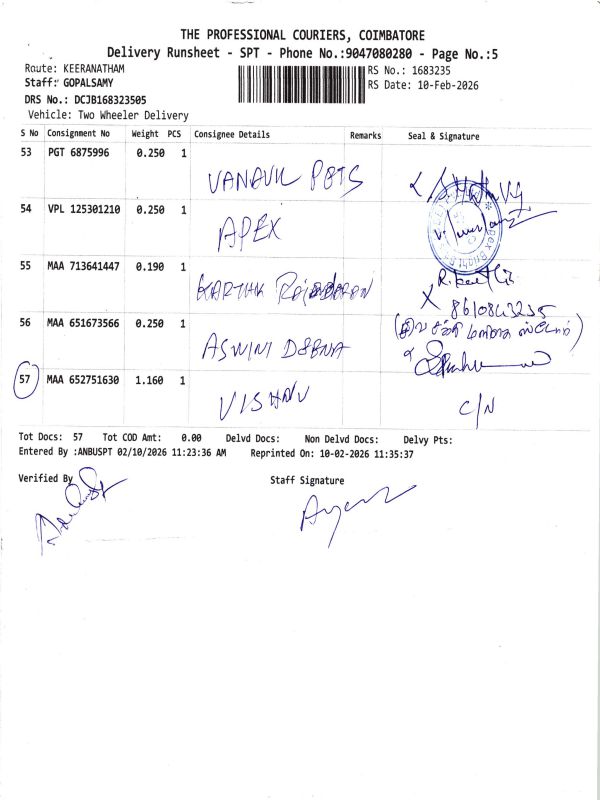 THE PROFESSIONAL COURIERS, COIMBATORE
Delivery Runsheet - SPT - Phone No.:9047080280 - Page No.:5
Route: KEERANATHAM
RS No.: 1683235
Staff: GOPALSAMY
RS Date: 10-Feb-2026
DRS No.: DCJB168323505
Vehicle: Two Wheeler Delivery
S No Consignment No Weight PCS Consignee Details Remarks Seal & Signature
53 PGT 6875996 0.250 1 VANAVIL PETS
54 VPL 125301210 0.250 1 APEX
55 MAA 713641447 0.190 1 KARTHIK
8610843235
56 MAA 651673566 0.250 1 ASWINI
57 MAA 652751630 1.160 1 VISHNU C/N
Tot Docs: 57 Tot COD Amt: 0.00 Delvd Docs: Non Delvd Docs: Delvy Pts:
Entered By :ANBUSPT 02/10/2026 11:23:36 AM Reprinted On: 10-02-2026 11:35:37
Verified By Staff Signature